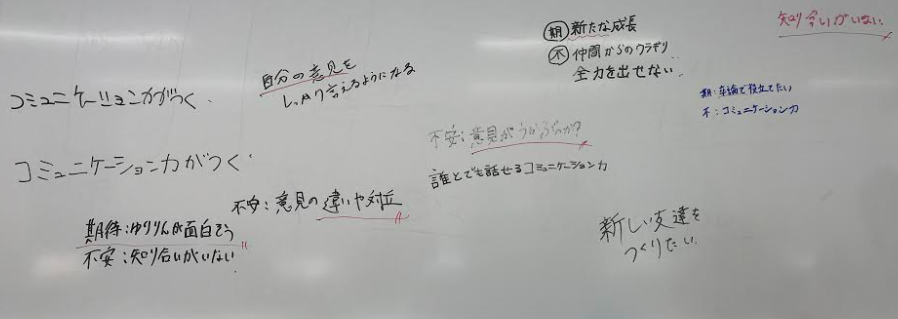 コミュニケーション力がつく
自分の意見を
しっかり言えるようになる
期 新たな成長
不 仲間からのウラギリ
全力を出せない
知り合いがいない
期:卒論で役立てたい
不:コミュニケーション力
不安:意見がうかぶのか?
誰とでも話せるコミュニケーション力
コミュニケーション力がつく
不安:意見の違いや対立
期待:ゆりりんが面白そう
不安:知り合いがいない
新しい友達を
つくりたい